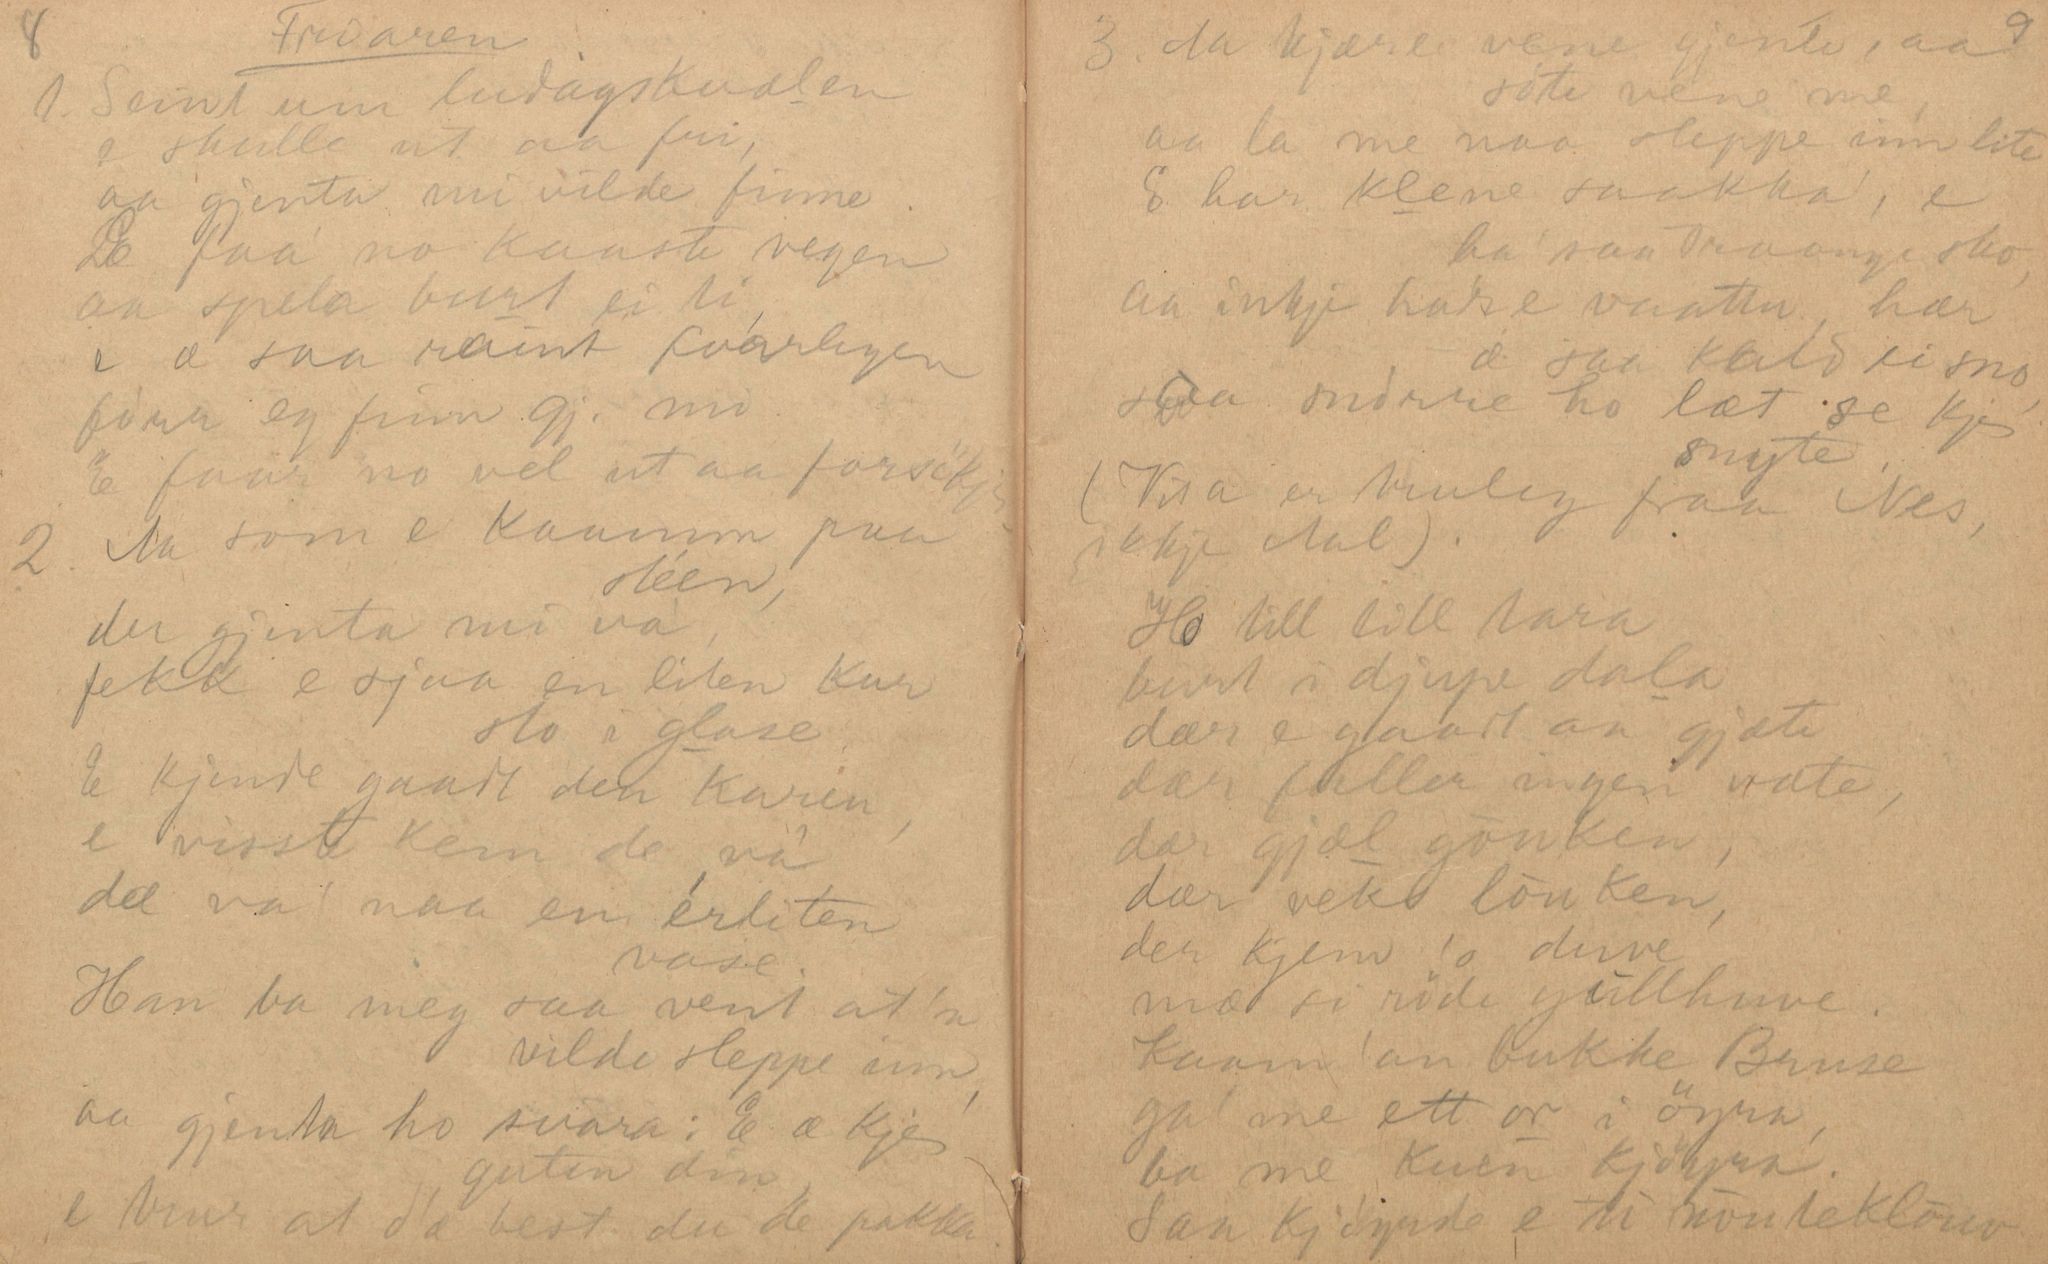 8
Friaren
1. Seint um ludagskvælen
e skulle ut aa fri,
aa gjenta mi vilde finne.
De faa no kaaste vegen
aa spela burt ei ti,
e æ saa raint fvarlegen
fórr eg finn gj. mi
E faar no vel ut aa forsökje
2. Aa som e kaamm paa
stéen,
der gjenta mi va,
fekk e sjaa en liten kar
sto i glase.
E kjende gaadt den karen,
e visste kem de va
dæ va' naa en érliten
vase.
Han ba meg saa vent at'n
vilde sleppe inn,
aa gjenta ho svara: E æ kje
guten din,
e trur at d'æ best du de pakka.
9
3. Aa kjære vene gjente, aa
söte vene me,
aa la me naa sleppe inn lite
E har klene saakka', e
ha' saa traange sko,
aa inkje har e vaatta, hær
æ saa kald ei sno,
saa snörre ho læt se kje
snyte.
(Visa er truleg fraa Nes,
ikkje Aal).
Ho till till tara
burt i djupe dala
dær e gaadt aa gjæte
dær faller ingen væte,
dær gjæl göuken,
dær veks löuken,
der kjem 'o duve
mæ si röde gullhuve.
Kaam 'an bukke Bruse
ga' me ett or i öyra,
ba me kuen kjöyra.
Saa kjöyrde e ti nöuteklöuv